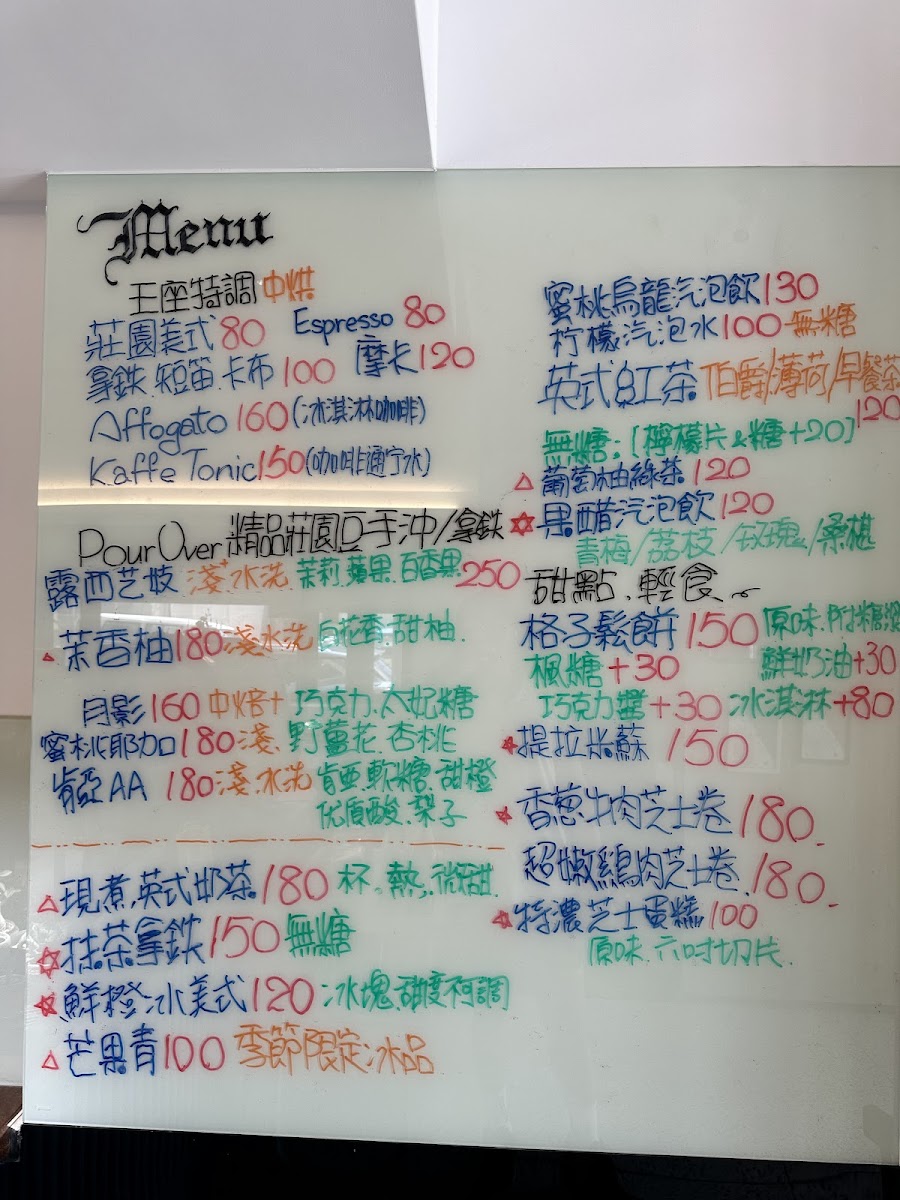 Menu
王座特調 中烘
莊園美式 80 Espresso 80
拿鐵.短笛.卡布 100 摩卡 120
Affogato 160 (冰淇淋咖啡)
Kaffe Tonic 150 (咖啡通宁水)
Pour Over 精品莊園豆手沖/拿鉄
露西艺妓 淺.水洗 茉莉.蘋果.百香果 250
△茉香柚 180 淺水洗 白花香.甜柚.
月影 160 中焙+ 巧克力.太妃糖
蜜桃耶加 180 淺. 野薑花.杏桃
肯亞AA 180 淺.水洗 肯亜.軟糖.甜橙
优質酸.梨子
△現煮.英式奶茶 180 杯.熱.微甜
☆抹茶拿鉄 150 無糖
★鮮橙冰美式 120 冰塊.甜度可調
△芒果青 100 季節限定冰品
蜜桃烏龍汽泡飲 130
柠檬汽泡水 100 無糖
英式紅茶 伯爵/薄荷/早餐茶
120
無糖:[檸檬片&糖+20]
△葡萄柚綠茶 120
☆果醋汽泡飲 120
青梅/荔枝/玫瑰/桑椹
甜點.輕食~
格子鬆餅 150 原味.附糖
楓糖+30 鮮奶油+30
巧克力醬+30 冰淇淋+80
★提拉米蘇 150
★香蔥牛肉芝士卷 180.
超嫩鷄肉芝士卷 180.
★特濃芝士蛋糕 100
原味.六吋切片.